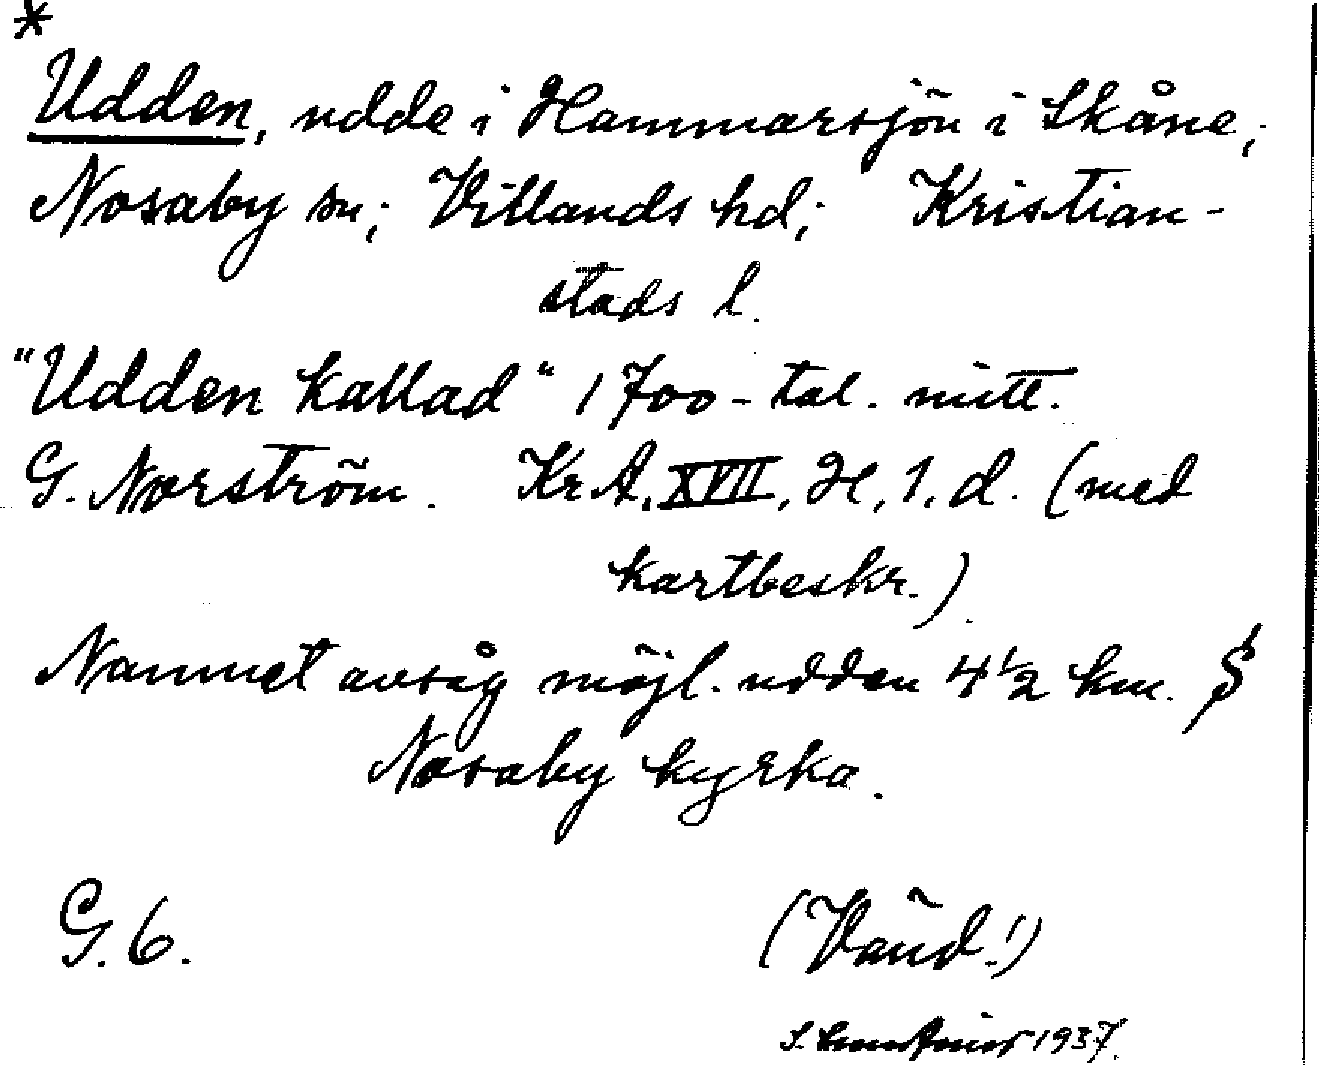 *
Udden, udde i Hammarsjön i Skåne;
Nosaby sn; Villands hd; Kristian-
stads l.
"Udden kallad" 1700-tal. mitt.
G. Norström. KrA, XVII, H, 1. d. (med
kartbeskr.)
Namnet avsåg möjl. udden 4 1/2 km. S
Nosaby kyrka.
G. 6.
(Vänd!)
S. 1937.